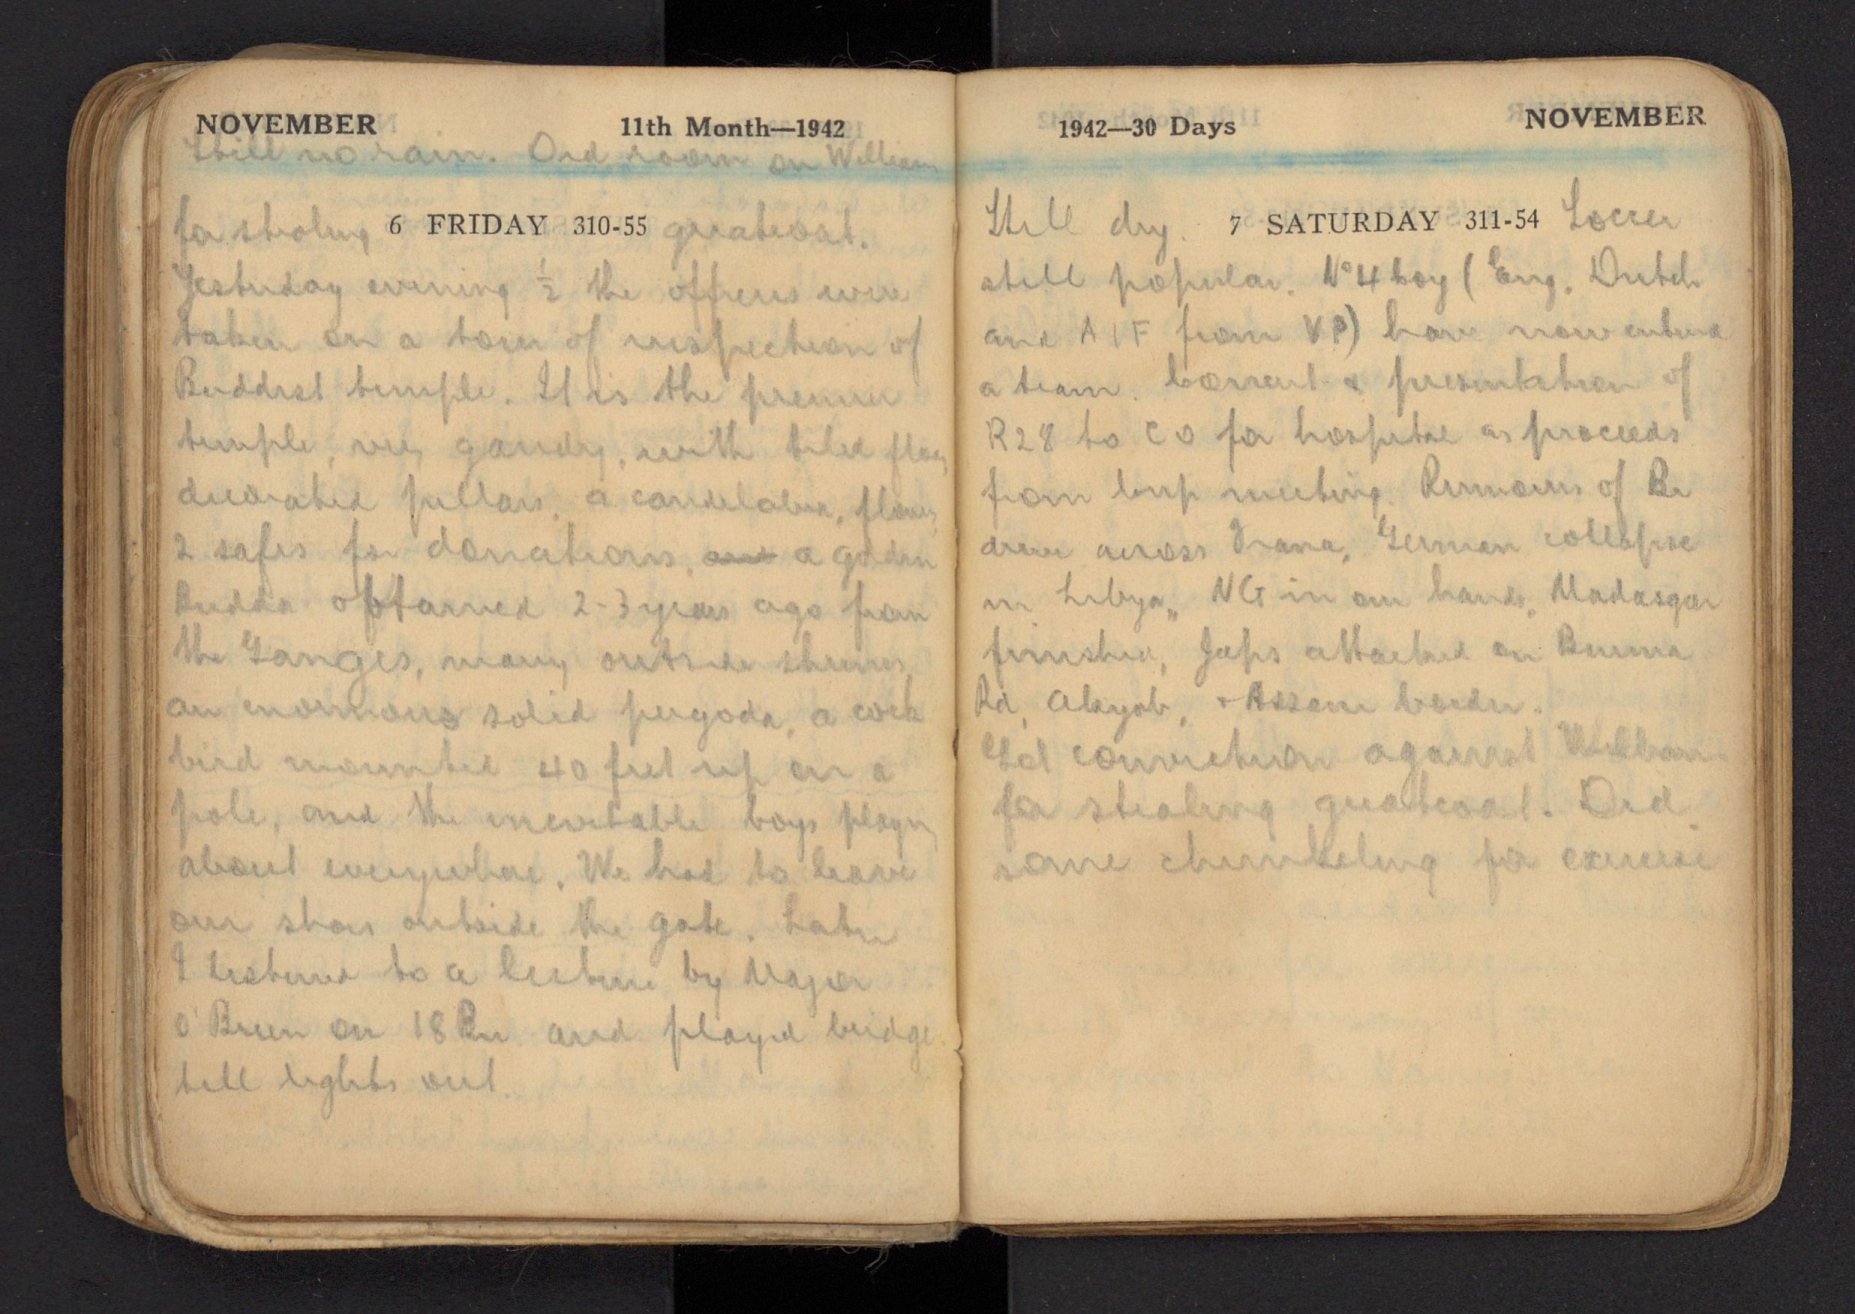 NOVEMBER 11th Month—1942
Still no rain. Ord room on William
for stealing 6 FRIDAY 310-55 greatcoat.
Yesterday evening ½ the officers were
taken on a tour of inspection of
Buddist temple. It is the premier
temple, very gaudy, with tiled floor,
decorated pillars, a candelabra, flowers,
2 safes for donations, a golden
Budda obtained 2-3 years ago from
the Ganges, many outside shrines,
an enormous solid pergoda, a cock
bird mounted 40 feet up on a
pole, and the inevitable boys playing
about everywhere. We had to leave
our shoes outside the gate. Later
I listened to a lecture by Major
O'Brien on 18 Bn and played bridge
till lights out.
1942—30 Days NOVEMBER
Still dry. 7 SATURDAY 311-54 Soccer
still popular. No 4 Coy (Eng. Dutch
and AIF from VP) have now entered
a team. presentation of
R28 to CO for hospital as proceeds
from meeting. Rumours of Br
drive across Irana, German collapse
in Libya, NG in our hands, Madasgar
finished, Japs attacked on Burma
Rd, Akyab, + Assam border.
Got conviction against William
for stealing greatcoat. Did
some chunkeling for exercise